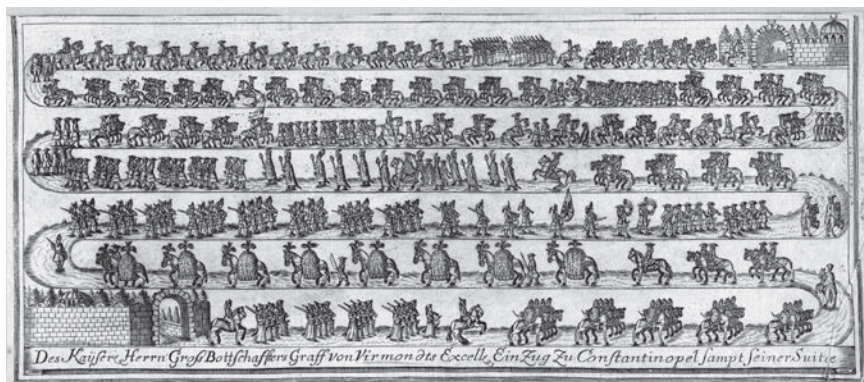 Des Kaÿsers Herrn Groß Bottschaffters Graff von Virmondts Excelle, Ein Zug Zu Constantinopel sampt seiner Suitte